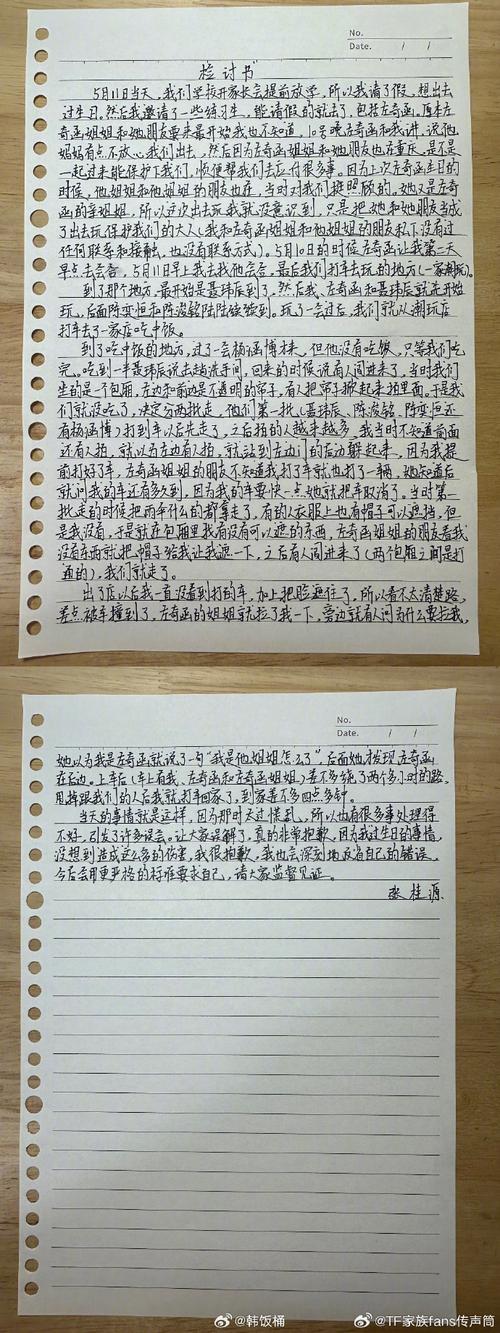 No.
Date. / /
检讨书
5月11日当天，我们学校开家长会提前放学，所以我请了假，想出去
过生日。然后我邀请了一些练习生，能请假的就去了，包括左奇函。原本左
奇函姐姐和她朋友要来最开始我也不知道，10号晚左奇函和我讲，说他
妈妈有点不放心我们出去，然后因为左奇函姐姐和她朋友也在重庆，是不是
一起过来能保护下我们，顺便帮我们去应付很多事，因为上次左奇函生日的
时候，他姐姐和他姐姐的朋友也在，当时对我们挺照顾的，她又是左奇
函的亲姐姐，所以这次出去玩我就没意识到，只是把她和她朋友当成
了出去玩保护我们的大人（我和左奇函姐姐和他姐姐的朋友私下没有过
任何联系和接触，也没有联系方式）。5月10日的时候左奇函让我第二天
早点去会合，5月11日早上我去找他会合，最后我们打车去玩的地方（一家潮玩）。
到了那个地方，最开始是聂玮辰到了，然后我、左奇函和聂玮辰就先开始
玩，后面陈奕恒和陈浚铭陆陆续续到。玩了一会过后，我们就从潮玩店
打车去了一家店吃中饭。
到了吃中饭的地方，过了一会杨涵博才来，但他没有吃饭，只等我们吃
完。吃到一半聂玮辰说去趟洗手间，回来的时候说有人闯进来了，当时我们
坐的是个包厢，左边和前边是不透明的帘子，有人把帘子掀起来拍里面。于是我
们就没吃了，决定分两批走，他们第一批（聂玮辰、陈浚铭、陈奕恒还
有杨涵博）打到车以后先走了，之后拍的人越来越多，我当时不知道前面
还有人拍，就以为左边有人拍，就站到左边门的后边躲起来，因为我提
前打好了车，左奇函姐姐的朋友不知道我打了车就也打了一辆，她知道后
就问我的车还有多久到，因为我的车要快一点她就把车取消了，当时第一
批走的时候把雨伞什么的都拿走了，有的人衣服上也有帽子可以遮挡，但
是我没有，于是就在包厢里找有没有可以遮的东西，左奇函姐姐的朋友看我
没有东西就把帽子给我让我遮一下，之后有人闯进来了（两个包厢之间是打
通的），我们就走了。
出了店以后我一直没看到打的车，加上把脸遮住了，所以看不太清楚路，
差点被车撞到了，左奇函的姐姐就拉了我一下，旁边就有人问为什么要拉我，
No.
Date. / /
她以为我是左奇函就说了一句“我是他姐姐怎么了”，后面她才发现左奇函
在右边。上车后（车上有我、左奇函和左奇函姐姐）差不多绕了两个多小时的路，
甩掉跟我们的人后我就打车回家了，到家差不多四点多钟。
当天的事情就是这样，因为那时太慌乱，所以也有很多事处理得
不好，引发了许多误会。让大家误解了，真的非常抱歉，因为我过生日的事情，
没想到造成这么多的伤害，我很抱歉，我也会深刻地反省自己的错误，
今后会用更严格的标准要求自己，请大家监督见证。
张桂源
@韩饭桶
@TF家族fans传声筒